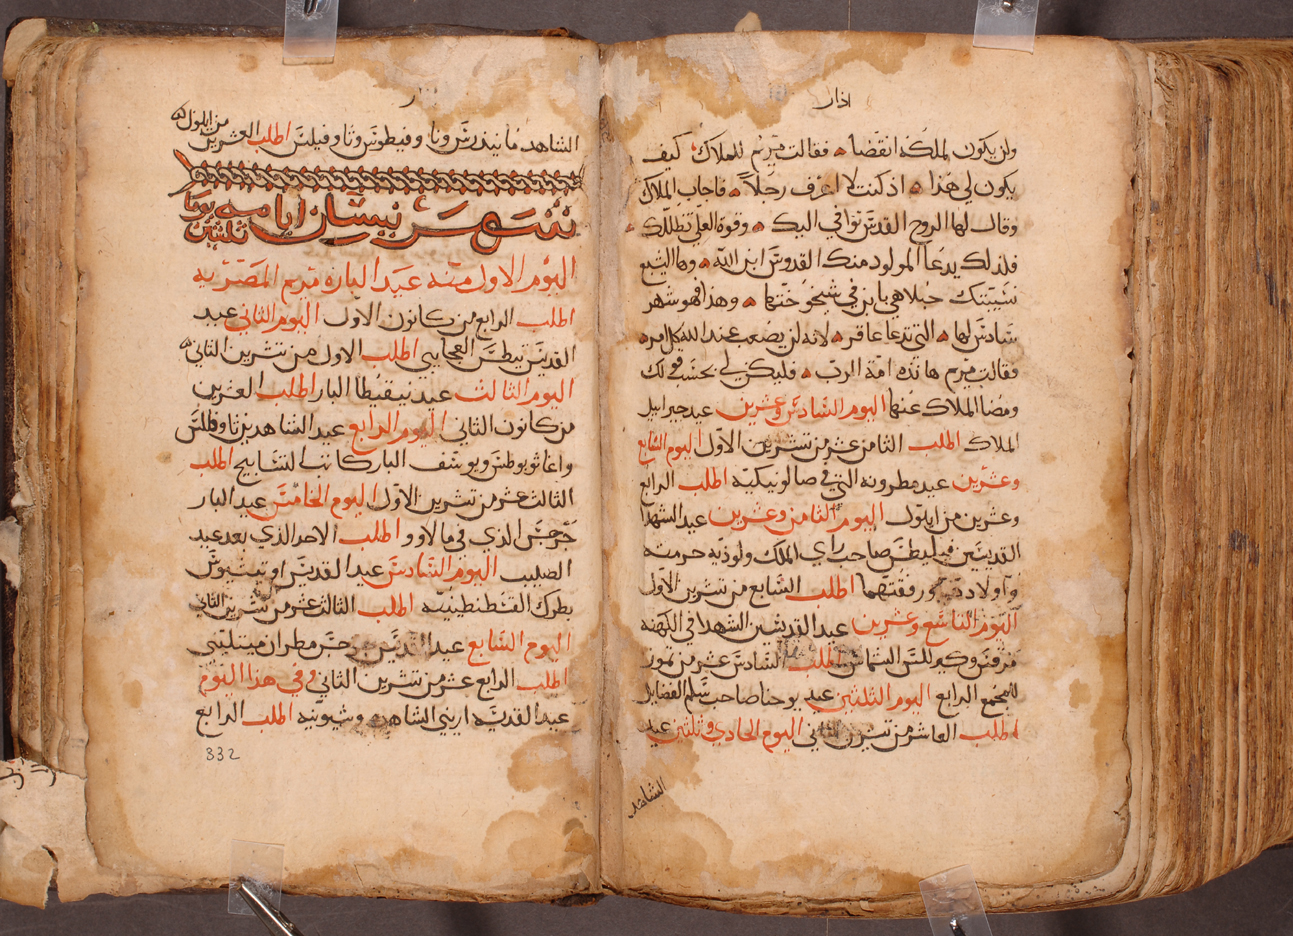 اذار
ولن يكون لملكه انقضا فقالت مريم للملاك كيف
يكون لي هذا اذ كنت لا اعرف رجلاً فاجاب الملاك
وقال لها الروح القدس توافي اليك وقوة العلي تظللك
فلذلك يدعا المولود منك القدوس ابن الله وها اليشبع
نسيبتك حبلا هي بابن في شيخوختها وهذا فهو شهر
سادس لها التي تدعا عاقر لانه لن يصعب عند الله كل امر
فقالت مريم ها نذه امة الرب فليكن لي بحسب قولك
ومضا الملاك عنها اليوم السادس وعشرين عيد جبراييل
الملاك اطلب الثامن عشر من تشرين الاول اليوم السابع
وعشرين عيد مطرونه التي في صالونيكيه اطلب الرابع
وعشرين من ايلول اليوم الثامن وعشرين عيد الشهدا
القديسين فيليطس صاحب راي الملك ولوذيه حرمته
واولاده ورفقتهما اطلب السابع من تشرين الاول
اليوم التاسع وعشرين عيد القديسين الشهدا في الكهنه
مرقس وكيرللس الشماس اطلب السادس عشر من تموز
للمجمع الرابع اليوم الثلثين عيد يوحنا صاحب سلم الفضايل
اطلب العاشر من تشرين الثاني اليوم الحادي وثلثين عيد
الشاهد
الشاهد مانيذرس وثا وفيطوس وثاوفيلس اطلب العشرين
من ايلول
شهر نيسان ايامه يومًا
ثلثين
اليوم الاول منه عيد الباره مريم المصريه
اطلب الرابع من كانون الاول اليوم الثاني عيد
القديس تيطس العجايبي اطلب الاول من تشرين الثاني
اليوم الثالث عيد نيقيطا البار اطلب العشرين
من كانون الثاني اليوم الرابع عيد الشاهدين ثاوفلس
واغاثوبوطس ويوسف البار كاتب التسابيح اطلب
الثالث عشر من تشرين الاول اليوم الخامس عيد البار
جرجس الذي في مالاوو اطلب الاحد الذي بعد عيد
الصليب اليوم السادس عيد القديس اوتيشيوس
بطرك القسطنطينيه اطلب الثالث عشر من تشرين الثاني
اليوم السابع عيد القديس جرجس مطران ميتيليني
اطلب الرابع عشر من تشرين الثاني وفي هذا اليوم
عيد القديسه اريني الشاهده وشيونيه اطلب الرابع
332